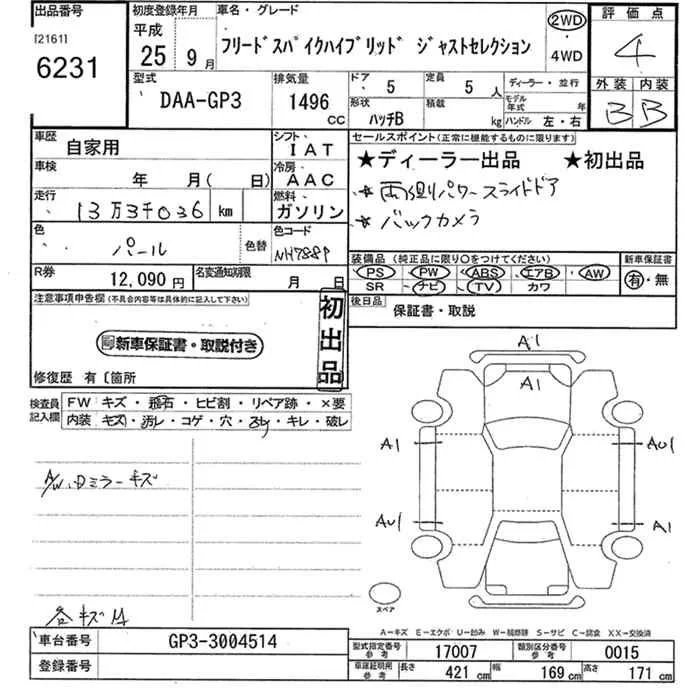 出品番号 初度登録年月 車名・グレード 2WD 評価点
[2161] 平成 フリードスパイクハイブリッド ジャストセレクション 4
6231 25年 9月 ・4WD 外装 内装
型式 排気量 ドア 定員 ディーラー・並行 B B
DAA-GP3 1496 CC 5 5人 モデル年式 年
形状 積載
ハッチB kg ハンドル 左・右
車歴 自家用 シフト IAT セールスポイント(正常に機能するものに限ります)
車検 年 月( 日) 冷房 AAC ★ディーラー出品 ★初出品
走行 13万3千036 km 燃料 ガソリン ★両側パワースライドドア
色 パール 色替 色コード NH788P ★バックカメラ
R券 12,090円 名変通知期限 月 日 装備品(純正品に限り○をつけてください) 新車保証書
PS PW ABS エアB AW 有・無
SR ナビ TV カワ
注意事項申告欄(不具合内容等は具体的に記入して下さい) 初出品 後日品 保証書・取説
新車保証書・取説付き
修復歴 有〔箇所
検査員記入欄 FW キズ・飛石・ヒビ割・リペア跡・×要
内装 キズ・汚レ・コゲ・穴・スレ・キレ・破レ
A1
A1
A1 AU1
A/W、Dミラーキズ
AU1 A1
スペア
各キズ
A−キズ E−エクボ U−凹み W−補修跡 S−サビ C−腐食 XX−交換済
車台番号 GP3-3004514 型式指定番号 参考 17007 類別区分番号 参考 0015
登録番号 車庫証明用 参考 長さ 421 cm 幅 169 cm 高さ 171 cm